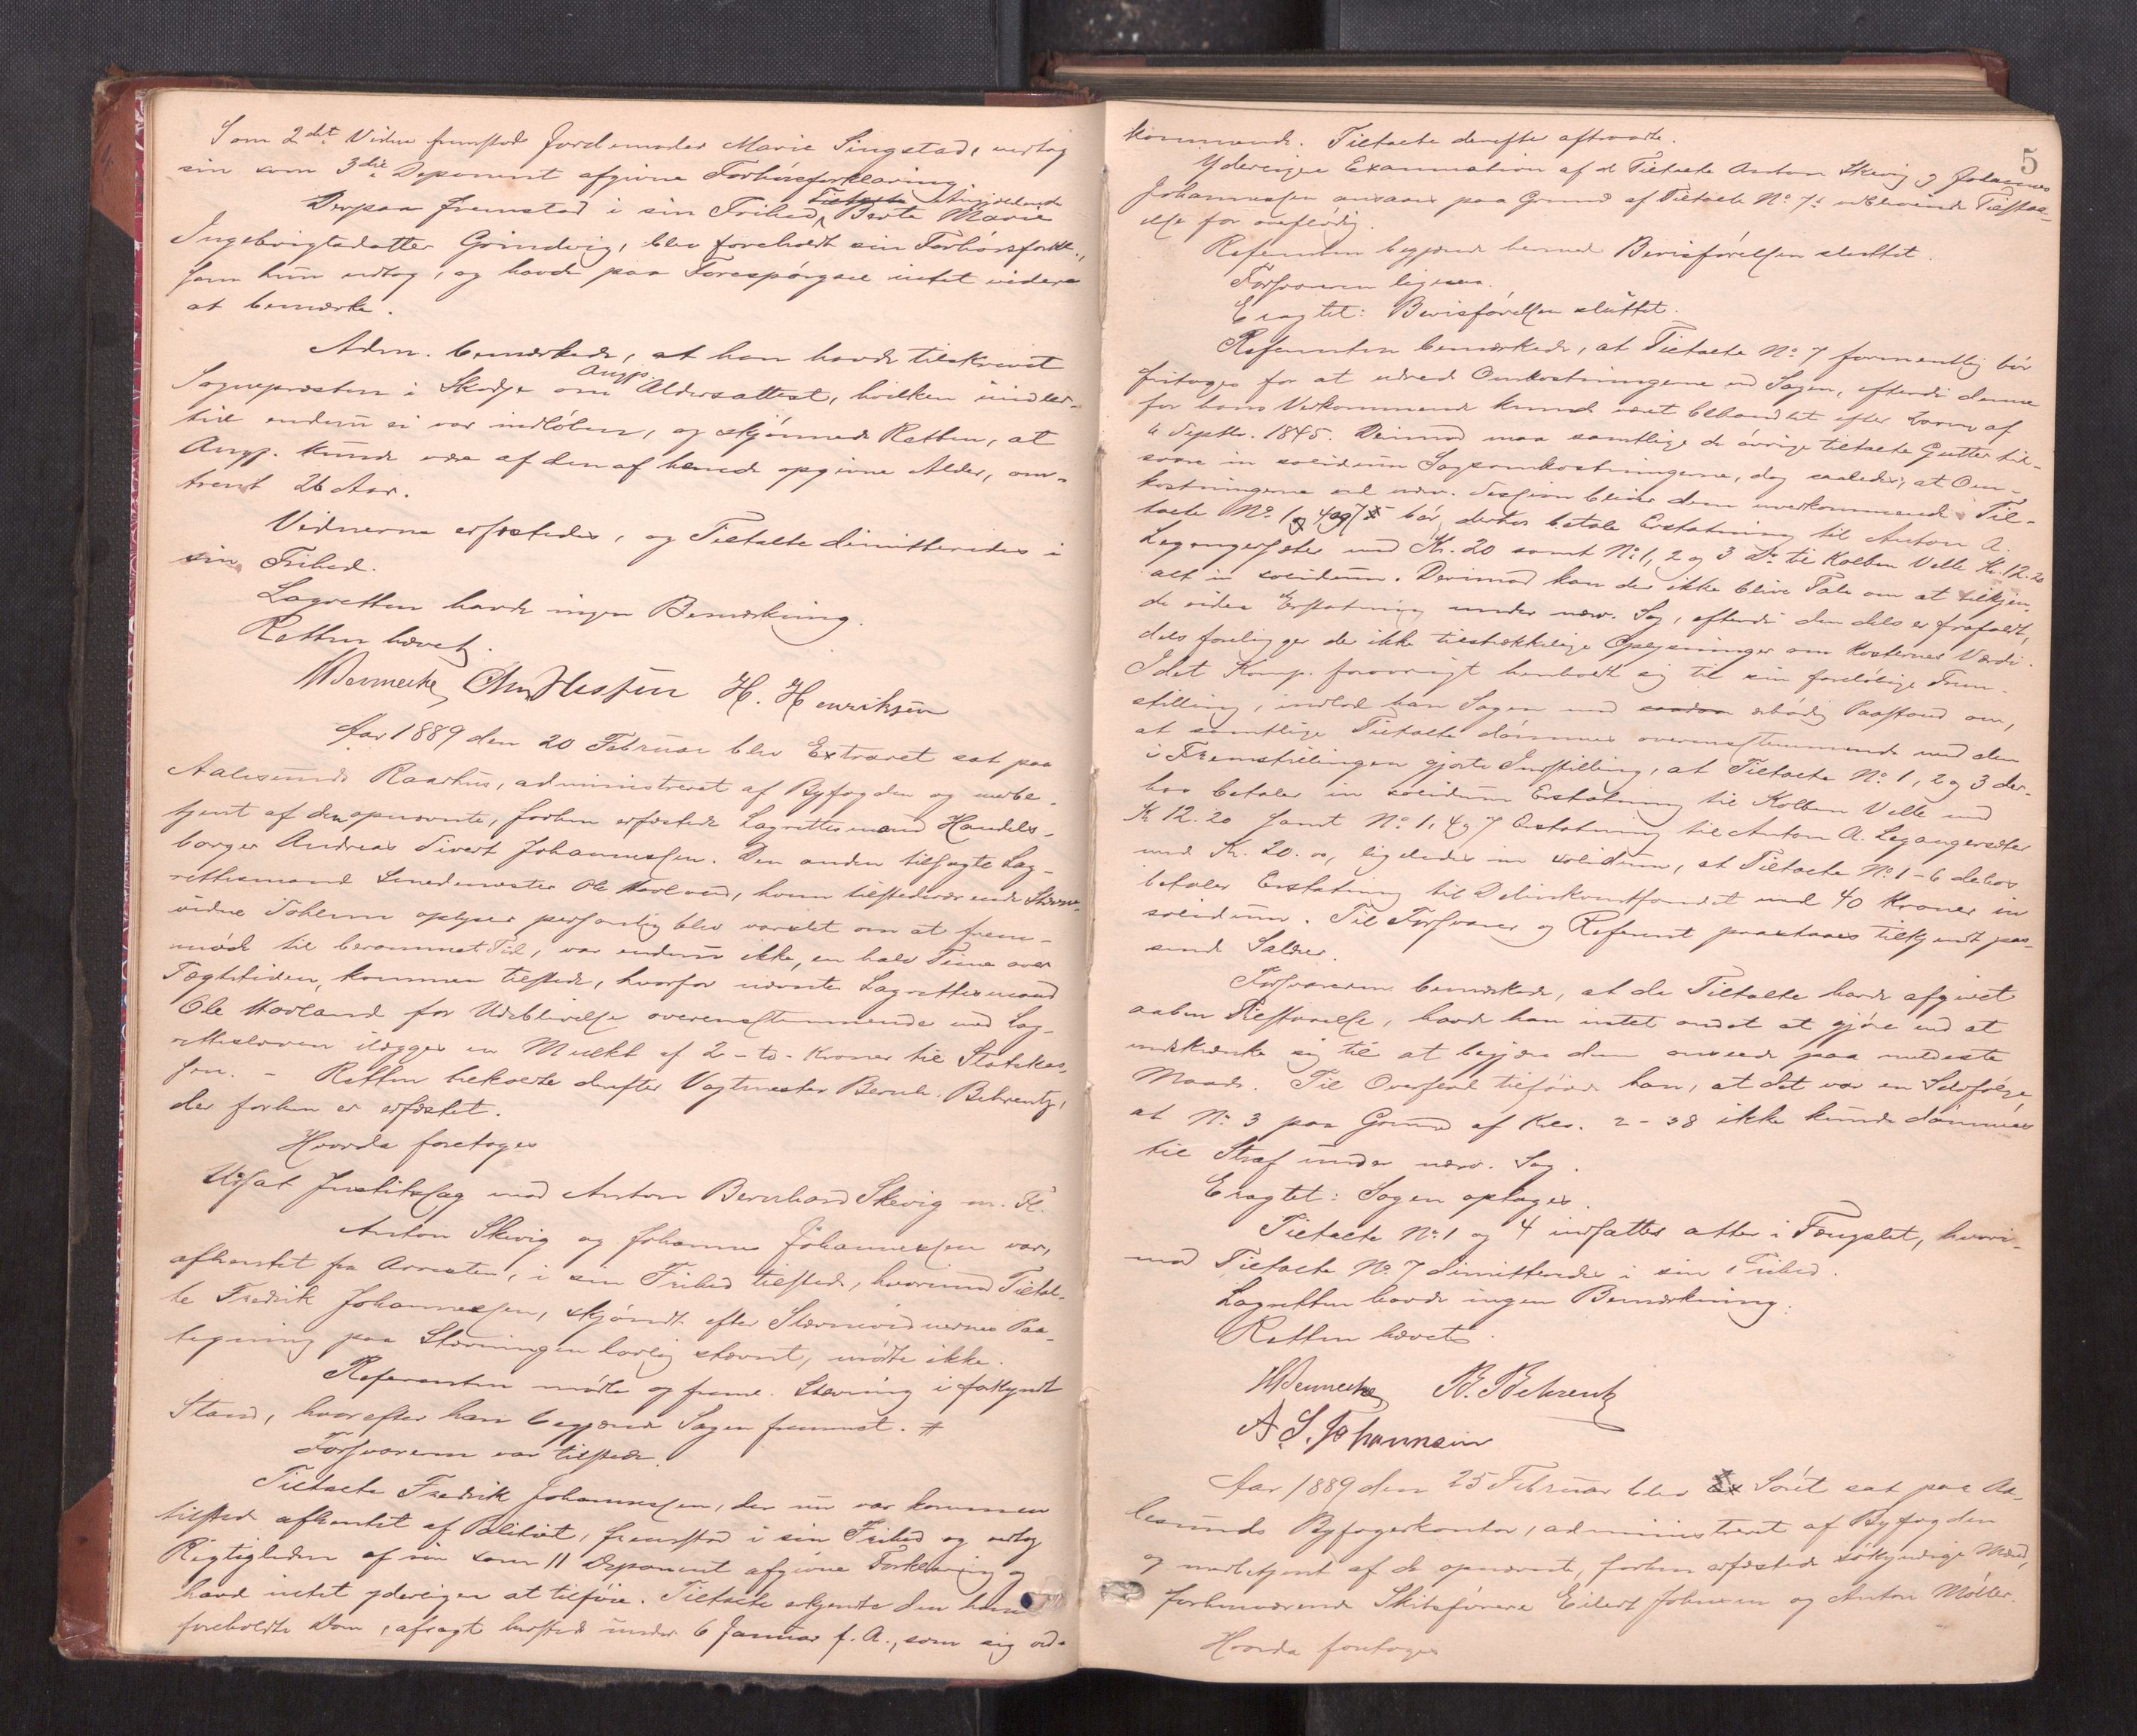 Som 2det Vidne fremstod Jordemoder Marie Singstad, vedtog
sin som 3die Deponent afgivne Forhørsforklaring.
Derpaa fremstod i sin Frihed Tiltalte Angjældende Berte Marie
Ingebrigtsdatter Grindvig, blev foreholdt sin Forhørsforkl.,
som hun vedtog, og havde paa Forespørgsel intet videre
at bemærke.
Adm. bemærkede, at han havde tilskrevet
Sognepræsten i Skodje om Angp. Aldersattest, hvilken imidler-
tid endnu ei var indløben, og skjønnede Retten, at
Angp. kunde være af den af hende opgivne Alder, om-
trent 26 Aar.
Vidnerne erfæstedes, og Tiltalte dimitteredes i
sin Frihed.
Lagretten havde ingen Bemærkning.
Retten hævet.
H. Henriksen
Aar 1889 den 20 Februar blev Extraret sat paa
Aalesunds Raadhus, administreret af Byfogden og medbe-
tjent af den opnævnte, forhen erfæstede Lagrettesmand Handels-
borger Andreas Sivert Johannessen. Den anden tilsagte Lag-
rettesmand Smedemester Ole Morland, hvem tilstedeværende Stævne-
vidne oplyser personlig blev varslet om at frem-
møde til berammet Tid, var endnu ikke, en halv Time over
Tægtetiden, kommen tilstede, hvorfor nævnte Lagrettesmand
Ole Morland for Udeblivelse overensstemmende med Lag-
retteloven ilægges en Mulkt af 2 - to - Kroner til Statskas-
sen. - Retten tilkaldte derefter Vagtmester Bernh. Behrentz,
der forhen er erfæstet.
Hvorda foretoges
Udsat Justitssag mod Anton Bernhard Skevig m. Fl.
Anton Skevig og Johannes Johannessen var,
afhentet fra Arresten, i sin Frihed tilstede, hvorimod Tiltal-
te Fredrik Johannessen, skjøndt efter Stævnevidnernes Paa-
tegning paa Stævningen lovlig stævnt, mødte ikke.
Referenten mødte og frem. Stævning i forkyndt
Stand, hvorefter han begjærede Sagen fremmet. #
Forsvareren var tilstede.
Tiltalte Fredrik Johannessen, der nu var kommen
tilstede afhentet af Politiet, fremstod i sin Frihed og vedtog
Rigtigheden af sin som 11 Deponent afgivne Forklaring og
havde intet yderligere at tilføie. Tiltalte vedkjendte den ham
foreholdte Dom, afsagt hersteds under 6 Januar f. A., som sig ved-
5
kommende. Tiltalte derefter aftraadte.
Yderligere Examination af de Tiltalte Anton Skevig og Johannes
Johannessen ansaaes paa Grund af Tiltalte No 7s Tilstaa-
else for overflødig.
Referenten begjærede hermed Bevisførelsen sluttet.
Forsvareren ligesaa.
Eragtet: Bevisførelsen sluttet.
Referenten bemærkede, at Tiltalte No 7 formentlig bør
fritages for at udrede Omkostningerne ved Sagen, eftersom denne
for hans Vedkommende kunde været behandlet efter Loven af
6 Septbr. 1845. Derimod maa samtlige de øvrige tiltalte Gutter til-
svare in solidum Sagsomkostningerne, dog saaledes, at Om-
kostningerne ved nærv. Session bliver dem uvedkommende. Til-
talte No 1, 4 og 7 bør derhos betale Erstatning til Anton A.
Legangersæter med Kr. 20 samt No 1, 2 og 3 Do til Kolben Velle Kr. 12.20
alt in solidum. Derimod kan der ikke blive Tale om at tilkjen-
de videre Erstatning under nærv. Sag, eftersom den dels er frafaldt,
dels foreligger der ikke tilstrækkelige Oplysninger om Kosternes Værdi.
Idet Komp. forøvrigt henholdt sig til sin foreløbige Frem-
stilling, indlod han Sagen med ærbødig Paastand om,
at samtlige Tiltalte dømmes overensstemmende med den
i Fremstillingen gjorte Indstilling, at Tiltalte No 1, 2 og 3 der-
hos betaler in solidum Erstatning til Kolben Velle med
Kr 12.20 samt No 1, 4 og 7 Erstatning til Anton A. Legangersæter
med Kr. 20.00, ligeledes in solidum, at Tiltalte No 1-6 derhos
betaler Erstatning til Delinkventfondet med 40 Kroner in
solidum. Til Forsvarer og Referent paastaaes tilkjendt pas-
sende Salær.
Forsvareren bemærkede, at da Tiltalte havde afgivet
aaben Tilstaaelse, havde han intet andet at gjøre end at
indskrænke sig til at begjære dem anseede paa mildeste
Maade. Til Overflod tilføiede han, at det var en Selvfølge,
at No 3 paa Grund af Krl. 2-38 ikke kunde dømmes
til Straf under nærv. Sag.
Eragtet: Sagen optages.
Tiltalte No 1 og 4 indsattes atter i Fængslet, hvori-
mod Tiltalte No 7 dimitteredes i sin Frihed.
Lagretten havde ingen Bemærkning.
Retten hævet.
B. Behrentz
A. S. Johannesen
Aar 1889 den 25 Februar blev Ex Søret sat paa Aa-
lesunds Byfogedkontor, administreret af Byfogden
og medbetjent af de opnævnte, forhen erfæstede søkyndige Mænd,
forhenværende Skibsførere Eilert Johnsen og Anton Møller.
Hvorda foretoges